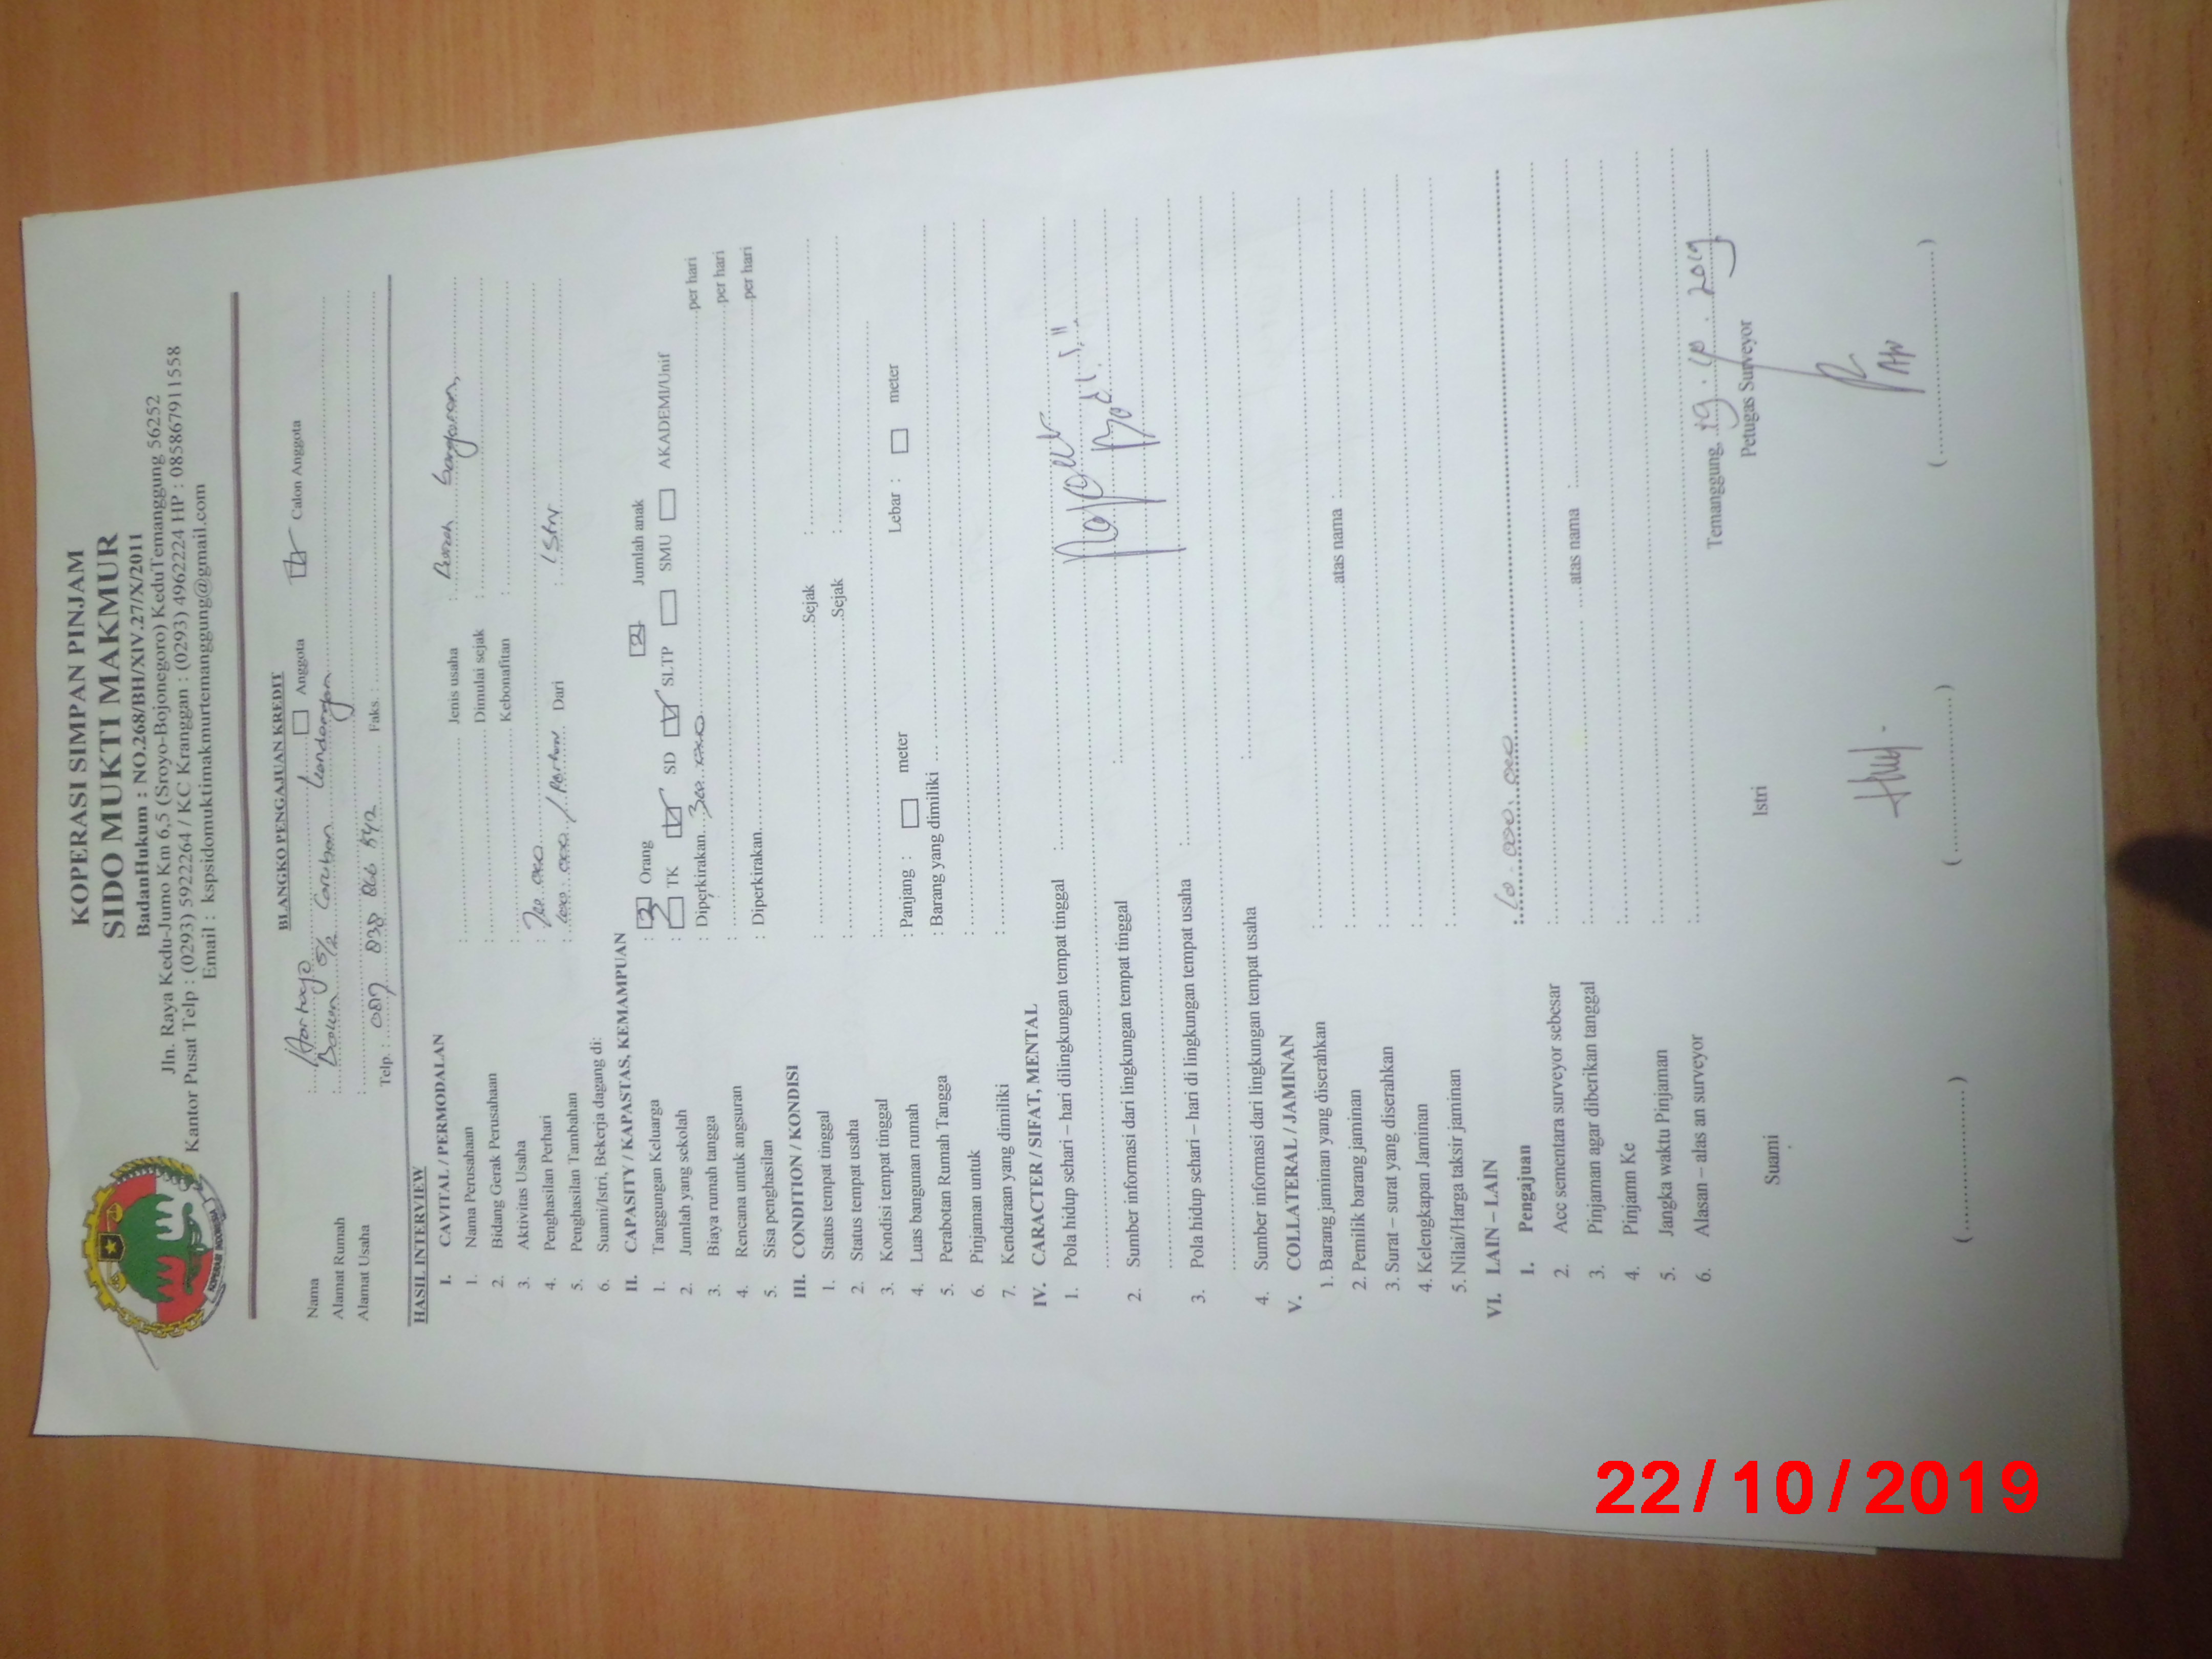 KOPERASI SIMPAN PINJAM
SIDO MUKTI MAKMUR
BadanHukum : NO.268/BH/XIV.27/X/2011
Jln. Raya Kedu-Jumo Km 6,5 (Sroyo-Bojonegoro) KeduTemanggung 56252
Kantor Pusat Telp : (0293) 5922264 / KC Kranggan : (0293) 4962224 HP : 085867911558
Email : kspsidomuktimakmurtemanggung@gmail.com
KOPERASI INDONESIA
BLANGKO PENGAJUAN KREDIT
Nama : Anggota Calon Anggota
Alamat Rumah : 5/2 Caruban Kandangan
Alamat Usaha :
Telp. : 087 838 866 Faks. :
HASIL INTERVIEW
I. CAVITAL / PERMODALAN
1. Nama Perusahaan : Jenis usaha :
2. Bidang Gerak Perusahaan : Dimulai sejak :
3. Aktivitas Usaha : Kebonafitan :
4. Penghasilan Perhari :
5. Penghasilan Tambahan : Dari : Istry
6. Suami/Istri, Bekerja dagang di:
II. CAPASITY / KAPASTAS, KEMAMPUAN
1. Tanggungan Keluarga : Orang 2 Jumlah anak
2. Jumlah yang sekolah : TK SD SLTP SMU AKADEMI/Unif
3. Biaya rumah tangga : Diperkirakan per hari
4. Rencana untuk angsuran : per hari
5. Sisa penghasilan : Diperkirakan per hari
III. CONDITION / KONDISI
1. Status tempat tinggal : Sejak :
2. Status tempat usaha : Sejak :
3. Kondisi tempat tinggal :
4. Luas bangunan rumah : Panjang : meter Lebar : meter
5. Perabotan Rumah Tangga : Barang yang dimiliki
6. Pinjaman untuk :
7. Kendaraan yang dimiliki :
IV. CARACTER / SIFAT, MENTAL
1. Pola hidup sehari – hari dilingkungan tempat tinggal :
2. Sumber informasi dari lingkungan tempat tinggal :
3. Pola hidup sehari – hari di lingkungan tempat usaha :
4. Sumber informasi dari lingkungan tempat usaha :
V. COLLATERAL / JAMINAN
1. Barang jaminan yang diserahkan :
2. Pemilik barang jaminan : atas nama :
3. Surat – surat yang diserahkan :
4. Kelengkapan Jaminan :
5. Nilai/Harga taksir jaminan :
VI. LAIN – LAIN
1. Pengajuan : 10.000.000
2. Acc sementara surveyor sebesar :
3. Pinjaman agar diberikan tanggal : atas nama :
4. Pinjamn Ke :
5. Jangka waktu Pinjaman :
6. Alasan – alas an surveyor :
Temanggung, 19 . 10 . 2019
Suami Istri Petugas Surveyor
22/10/2019